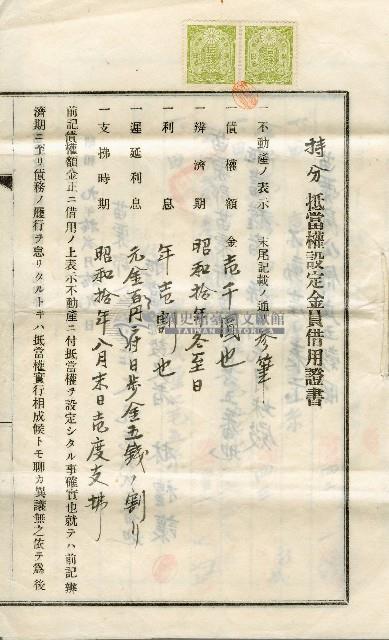 持分 抵當權設定金員借用證書
一不動產ノ表示 末尾記載ノ通 參筆
一債權額 金壱千圓也
一辨濟期 昭和拾年冬至日
一利息 年壱割也
一遲延利息 元金百円ニ付日步金五錢ノ割リ
一支拂時期 昭和拾年八月末日壱度支拂
前記債權額金正ニ借用ノ上表示不動產ニ付抵當權ヲ設定シタル事確實也就テハ前記辨
濟期ニ至リ債務ノ履行ヲ怠リタルトキハ抵當權實行相成候トモ聊カ異議無之依テ爲後